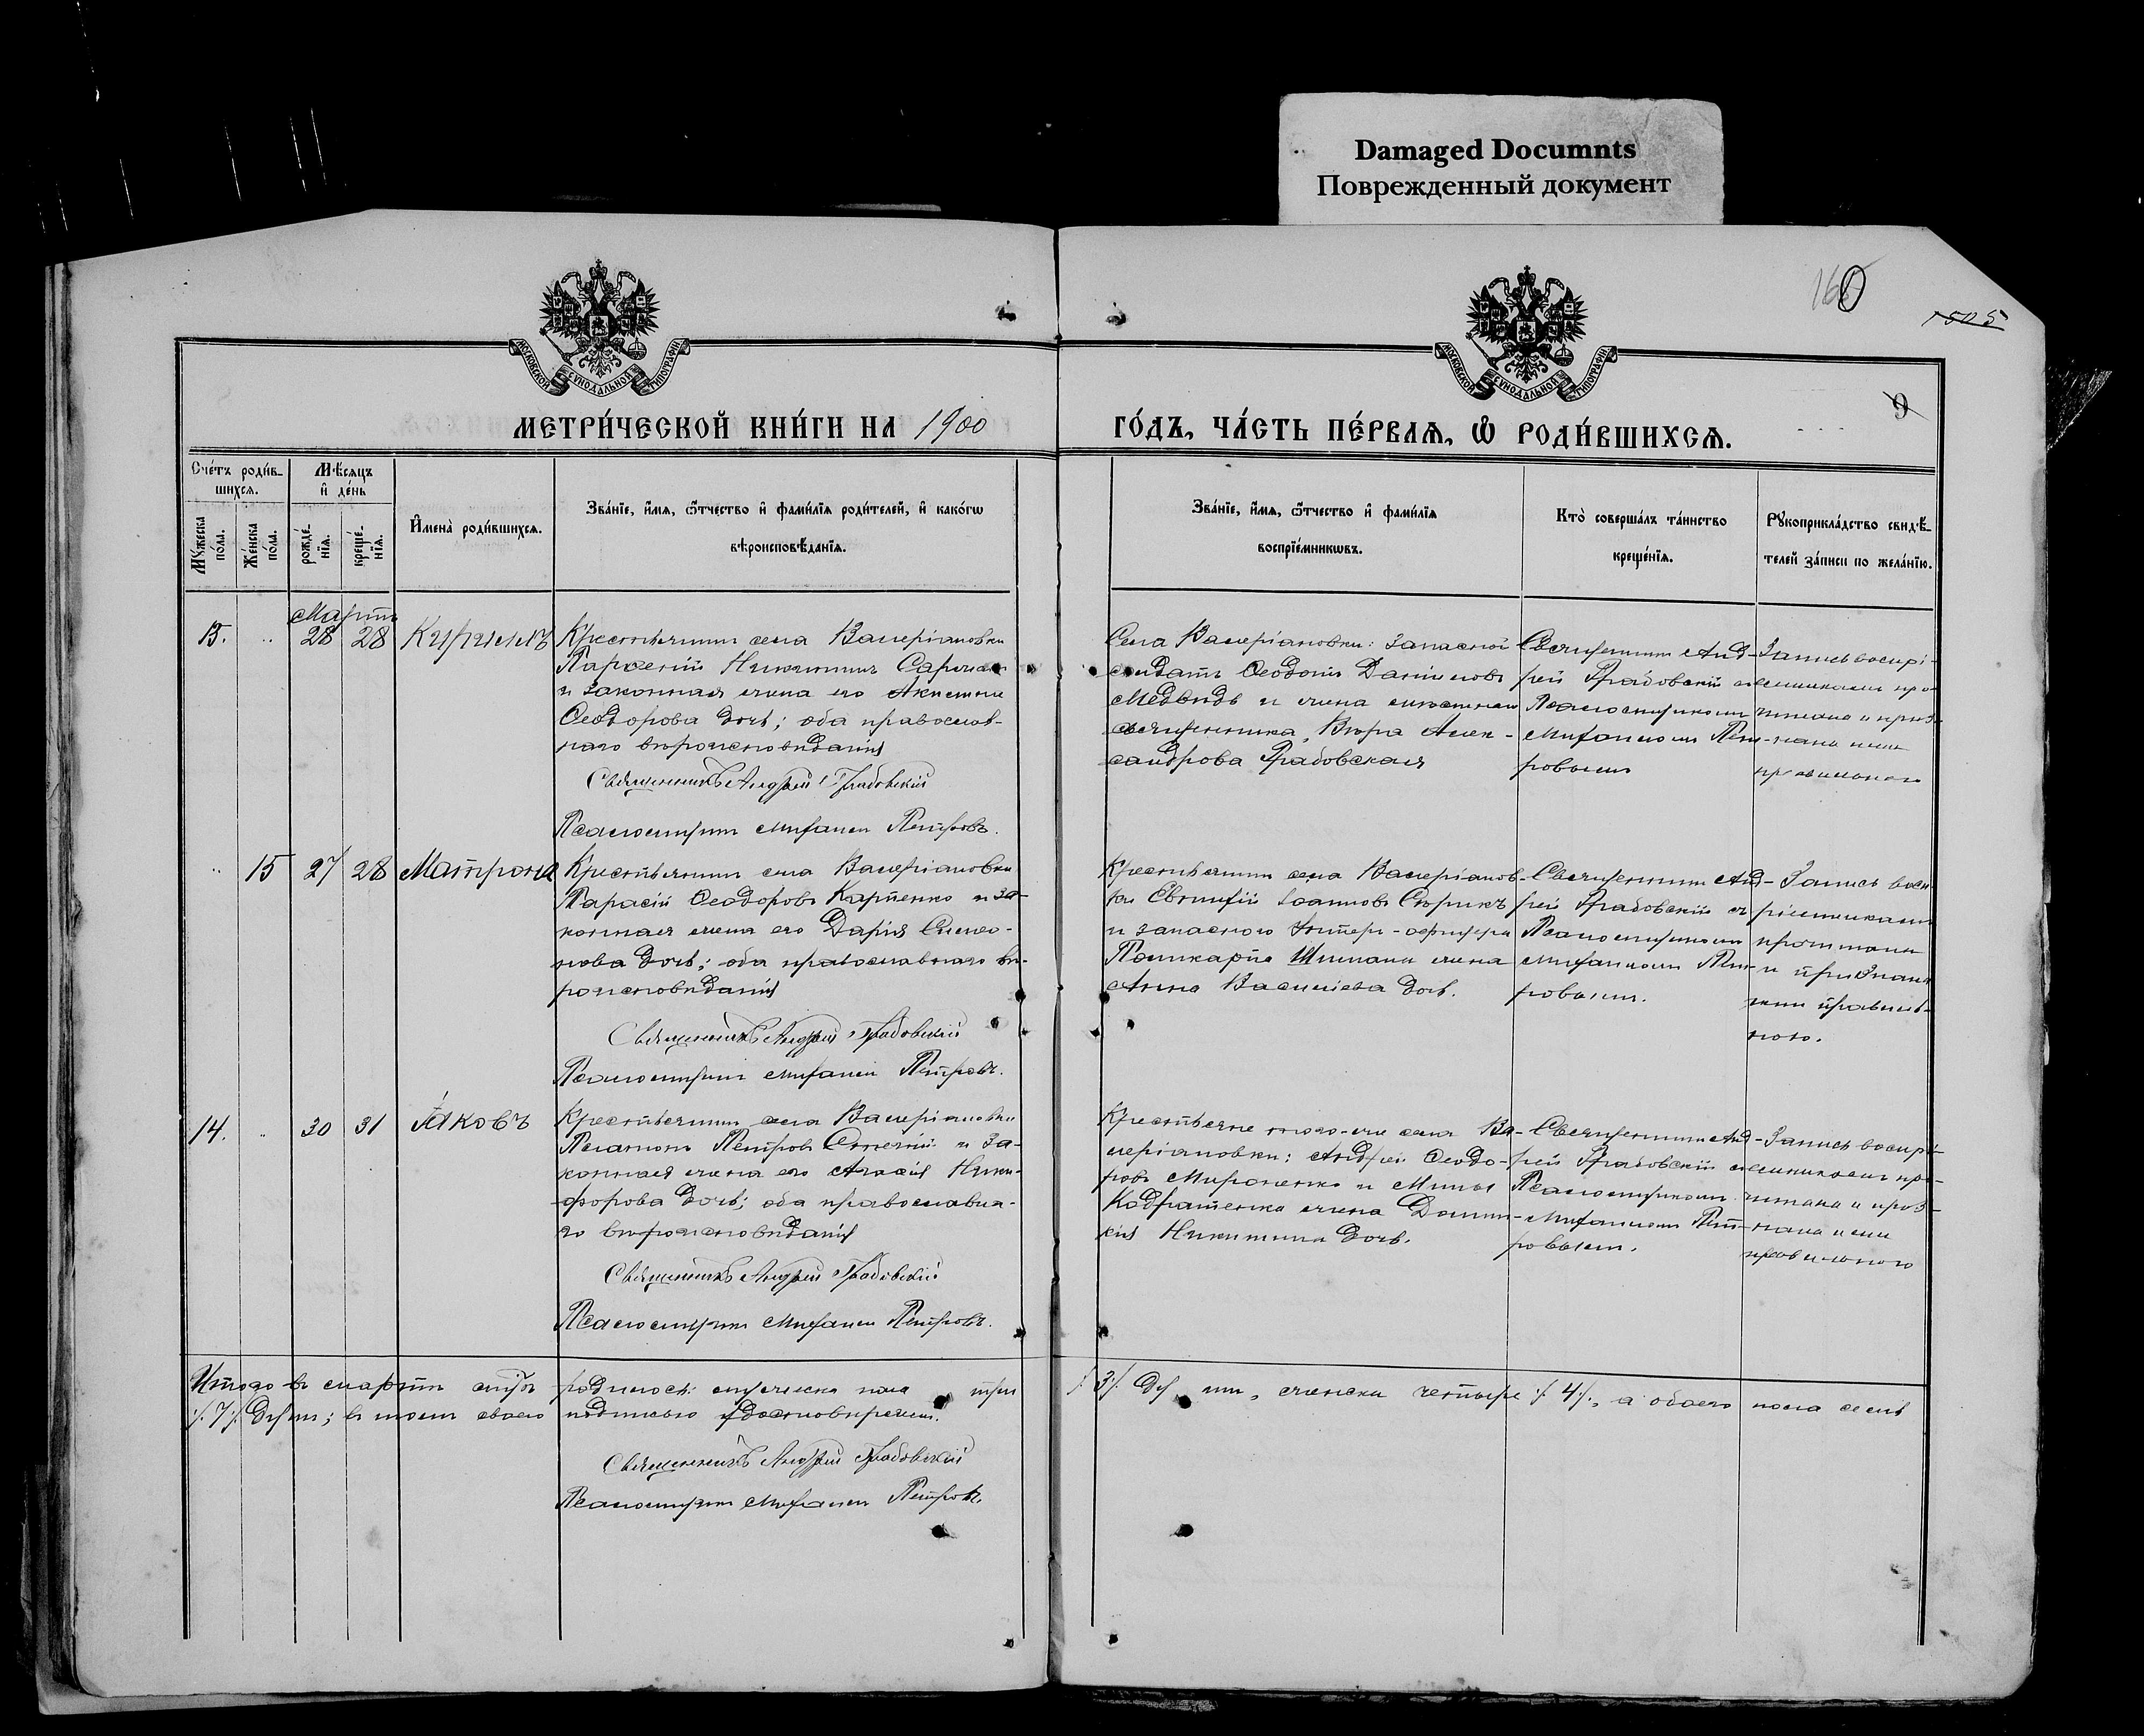 Damaged Documnts
Поврежденный документ
160
1505
9
МОСКОВСКОЙ СѴНОДАЛЬНОЙ ТИПОГРАФІИ
МОСКОВСКОЙ СѴНОДАЛЬНОЙ ТИПОГРАФІИ
МЕТРИ́ЧЕСКОЙ КНИ́ГИ НА 1900
ГО́ДЪ, ЧА́СТЬ ПЕ́РВАѦ, Ѡ҆ РОДИ́ВШИХСѦ.
Сче́тъ роди́в-
шихсѧ.
Мѣ́сѧцъ
и҆ де́нь
Мꙋ́жеска
по́ла.
Же́нска
по́ла.
рожде́-
нїѧ.
креще́-
нїѧ.
И҆мена̀ роди́вшихсѧ.
Зва́нїе, и҆́мѧ, ѻ҆́тчество и҆ фами́лїѧ роди́телей, и҆ како́гѡ
вѣроисповѣ́данїѧ.
Зва́нїе, и҆́мѧ, ѻ҆́тчество и҆ фами́лїѧ
воспрїе́мникѡвъ.
Кто̀ соверша́лъ та́инство
креще́нїѧ.
Рꙋкоприкла́дство свидѣ́-
телей за́писи по жела́нїю.
Мартъ
13. " 28 28 Кириллъ
Крестьянинъ села Валеріановки
Парѳеній Никитинъ
и законная жена его
Ѳеодорова дочь; оба православ-
наго вѣроисповѣданія
Священникъ Андрей Грабовскій
Псаломщикъ Митрофанъ Петровъ.
Села Валеріановки: запасной
солдатъ Ѳеодотъ Даніиловъ
Медвидь и жена мѣстнаго
священника, Вѣра Алек-
сандрова Грабовская
Священникъ Анд-
рей Грабовскій съ
Псаломщикомъ
Митрофаномъ Пет-
ровымъ
Запись воспрі-
емникамъ про-
читана и приз-
нана ими
правильною
" 15 27 28 Матрона
Крестьянинъ села Валеріановки
Тарасій Ѳеодоровъ Карпенко и за-
конная жена его Дарія Симео-
нова дочь; оба православнаго вѣ-
роисповѣданія
Священникъ Андрей Грабовскій
Псаломщикъ Митрофанъ Петровъ.
Крестьянинъ села Валеріанов-
ки Евѳимій Іоанновъ Сюрикъ
и запаснаго Унтеръ-офицера
Поликарпа Шимана жена
Анна Василіева дочь.
Священникъ Анд-
рей Грабовскій съ
Псаломщикомъ
Митрофаномъ Пет-
ровымъ.
Запись восп-
ріемникамъ
прочитана
и признана
ими правиль-
ною.
14. " 30 31 Іаковъ
Крестьянинъ села Валеріановки
Платонъ Петровъ и за-
конная жена его Агаѳія Ники-
форова дочь; оба православна-
го вѣроисповѣданія
Священникъ Андрей Грабовскій
Псаломщикъ Митрофанъ Петровъ.
Крестьяне того-же села Ва-
леріановки: Андрей Ѳеодо-
ровъ Мироненко и Мины
Кадратенка жена Домни-
кія Никитина дочь.
Священникъ Анд-
рей Грабовскій съ
Псаломщикомъ
Митрофаномъ Пет-
ровымъ.
Запись воспрі-
емникамъ про-
читана и приз-
нана ими
правильною
Итого въ мартѣ мѣсяцѣ родилось: мужеска пола три
/:3:/ души, женска четыре /:4:/, а обоего пола семь
/:7:/ душъ; въ томъ своею подписью удостовѣряемъ.
Священникъ Андрей Грабовскій
Псаломщикъ Митрофанъ Петровъ.